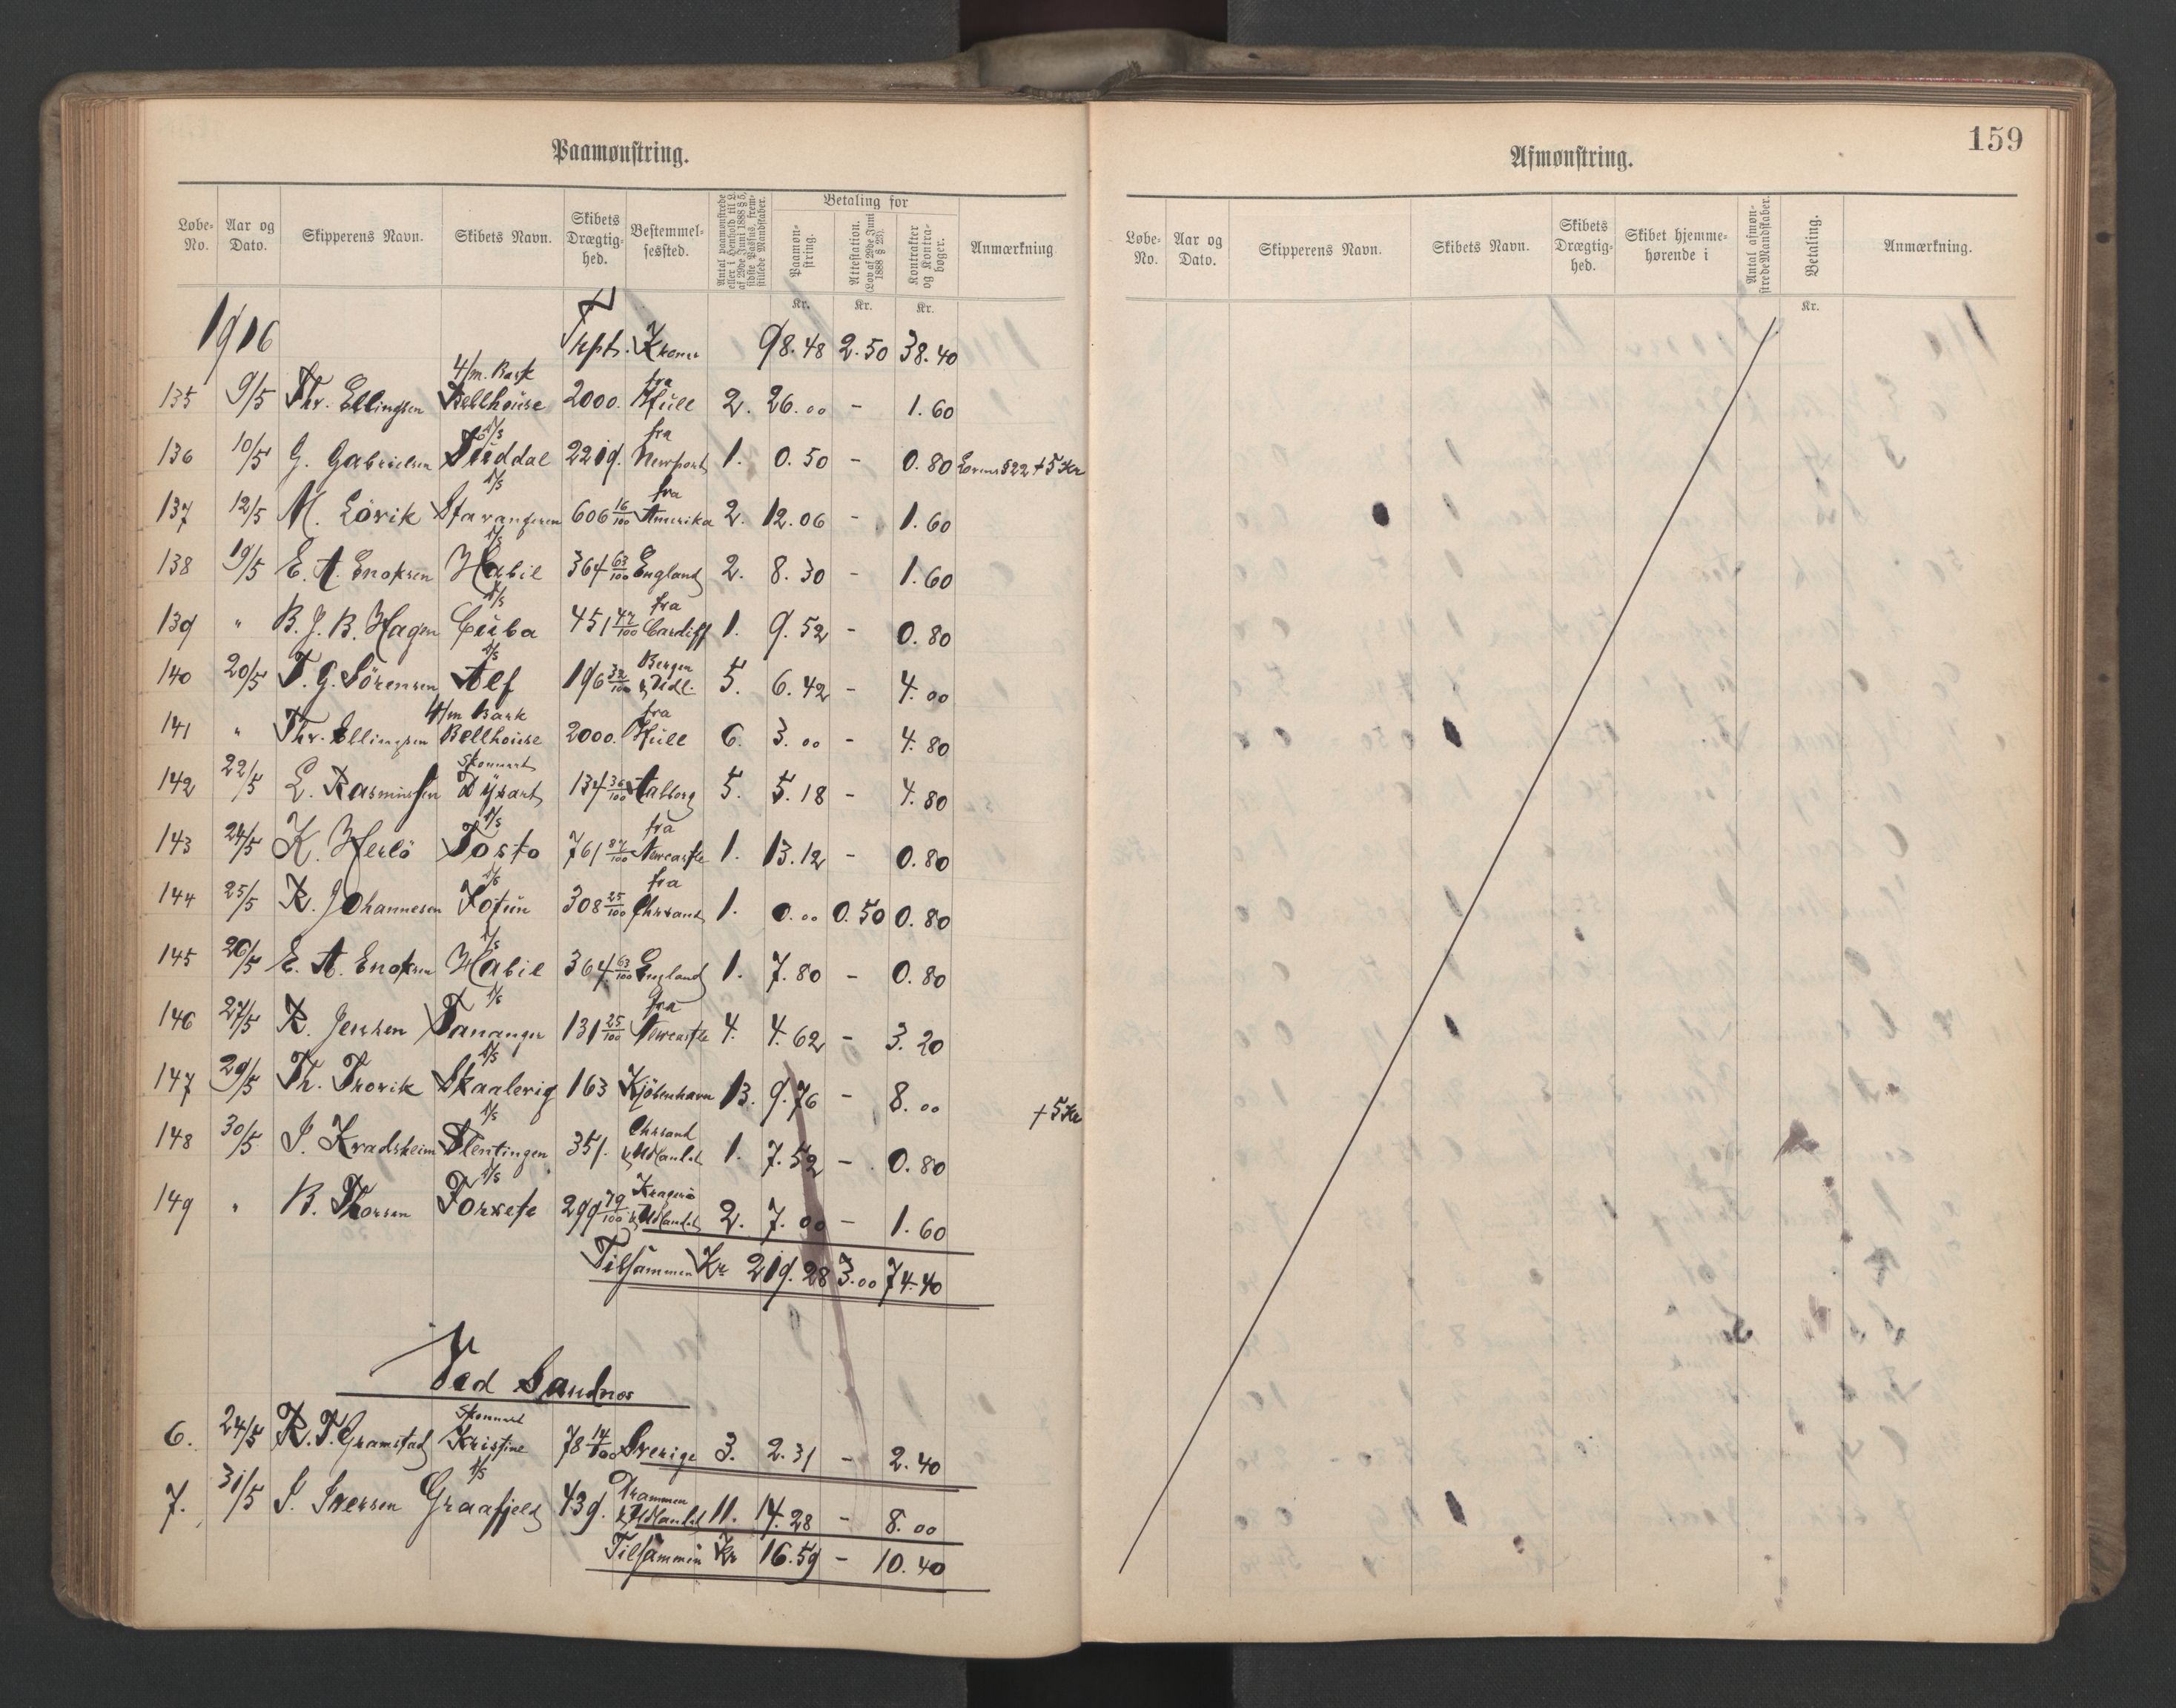 Paamønstring.
Løbe-No. Aar og Dato. Skipperens Navn. Skibets Navn. Skibets Drægtig-hed. Bestemmel-sessted. Antal paamønstrede eller i Henhold til L. af 29de Juni 1888 § 5, sidste Passus, frem-stillede Mandskaber. Betaling for Paamøn-string. Attestation. (Lov af 29de Juni 1888 § 23). Kontrakter og Kontra-bøger. Anmærkning
Kr. Kr. Kr.
1916 Trpt. Kroner 98.48 2.50 38.40
135 9/5 Thr. Ellingsen 4/m. Bark Bellhouse 2000. fra Hull 2. 26.00 - 1.60
136 10/5 G. Gabrielsen D/S Suddal 2219. fra Newport 1. 0.50 - 0.80 § 22 + 5 Kr
137 12/5 M. Lövik D/S Stavangeren 606 16/100 fra Amerika 2. 12.06 - 1.60
138 19/5 E. A. Enoksen D/S Habil 364 63/100 England 2. 8.30 - 1.60
139 " B. J. B. Hagen D/S Cuba 451 47/100 fra Cardiff 1. 9.52 - 0.80
140 20/5 T. G. Sörensen D/S Alf 196 32/100 Bergen & Udl. 5. 6.42 - 4.00
141 " Thr. Ellingsen 4/m Bark Bellhouse 2000. fra Hull 6. 3.00 - 4.80
142 22/5 L. Rasmussen Skonnert Dysart 134 36/100 Aalborg 5. 5.18 - 4.80
143 24/5 K. Herlö D/S Tosto 761 87/100 fra Newcastle 1. 13.12 - 0.80
144 25/5 R. Johannesen D/S Jotun 308 25/100 fra Chrsand 1. 0.00 0.50 0.80
145 26/5 E. A. Enoksen D/S Habil 364 63/100 England 1. 7.80 - 0.80
146 27/5 R. Jensen D/S Tananger 131 25/100 fra Newcastle 4. 4.62 - 3.20
147 29/5 Th. Trovik D/S Skaalevig 163 Kjöbenhavn 13. 9.76 - 8.00
+ 5 Kr
148 30/5 J. Kvadsheim D/S Slentingen 351. Chrsand & Udlandet 1. 7.52 - 0.80
149 " B. Thorsen D/S Torxefe 299 79/100 Kragerö & Udlandet 2. 7.00 - 1.60
Tilsammen Kr 219.28 3.00 74.40
Ved Sandnes
6. 24/5 R. T. Gramstad Skonnert Kristine 78 14/100 Sverige 3. 2.31 - 2.40
7. 31/5 S. Iversen D/S Graafjeld 439. Drammen & Udlandet 11. 14.28 - 8.00
Tilsammen Kr 16.59 - 10.40
159
Afmønstring.
Løbe-No. Aar og Dato. Skipperens Navn. Skibets Navn. Skibets Drægtig-hed. Skibet hjemme-hørende i Antal afmøn-strede Mandskaber. Betaling. Anmærkning.
Kr.